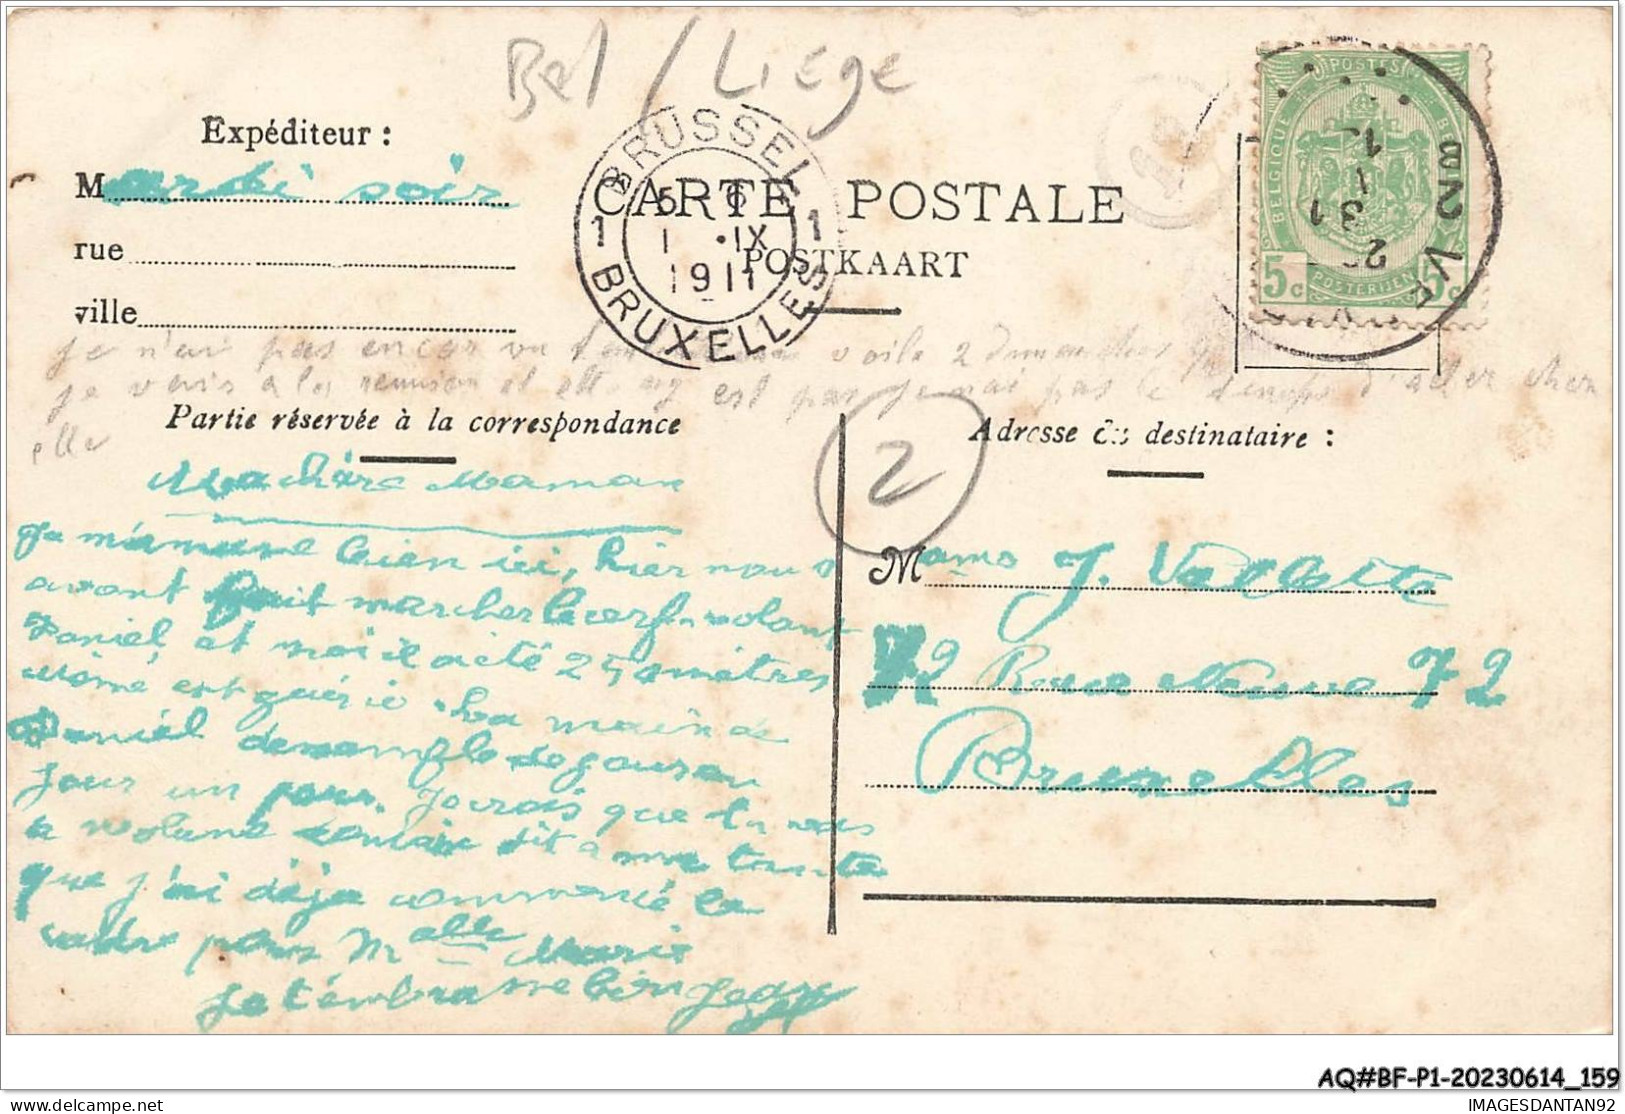 Bel / Liège
Expéditeur :
Mardi soir
rue
ville
BRUSSEL
1 1
5 6
1 • IX
1911
BRUXELLES
CARTE POSTALE
POSTKAART
POSTES
BELGIQUE
BELGIE
5c 5c
POSTERIJEN
je n'ai pas encor vu voila 2 dimanches
je vais à la reunion et est pas je nai pas le temps d'aller cher
elle
Partie réservée à la correspondance
2
Adresse du destinataire :
Ma chère Maman
Je m'amuse bien ici, hier nous
avont fait marcher le cerf-volant
Daniel et moi il a été 250 mètres
Mémé est guérie. La main de
Daniel de jour en
jour un Je crois que tu as
dit a ma tante
que j'ai déja commencé le
cadre pour Melle Marie
Je t'embrasse bien
Mame J. Vallette
72 Rue Neuve 72
Bruxelles
AQ#BF-P1-20230614_159
delcampe.net
IMAGESDANTAN92